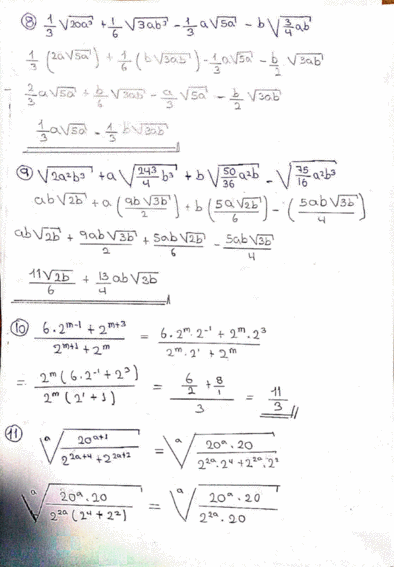 ⑧ 1/3 √20a³ + 1/6 √3ab³ - 1/3 a√5a - b√3/4 ab
1/3 (2a√5a) + 1/6 (b√3ab) - 1/3 a√5a - b/2 √3ab
2/3 a√5a + b/6 √3ab - a/3 √5a - b/2 √3ab
1/3 a√5a - 1/3 b√3ab
⑨ √2a²b³ + a√243/4 b³ + b√50/36 a²b - √75/16 a²b³
ab√2b + a(9b√3b/2) + b(5a√2b/6) - (5ab√3b/4)
ab√2b + 9ab√3b/2 + 5ab√2b/6 - 5ab√3b/4
11√2b/6 + 13/4 ab√3b
⑩ 6·2^(m-1) + 2^(m+3) / 2^(m+1) + 2^m = 6·2^m·2^-1 + 2^m·2³ / 2^m·2¹ + 2^m
= 2^m(6·2^-1 + 2³) / 2^m(2¹ + 1) = 6/2 + 8/1 / 3 = 11/3
⑪ ᵃ√20^(a+1) / 2^(2a+4) + 2^(2a+2) = ᵃ√20^a·20 / 2^(2a)·2⁴ + 2^(2a)·2²
ᵃ√20^a·20 / 2^(2a)(2⁴ + 2²) = ᵃ√20^a·20 / 2^(2a)·20